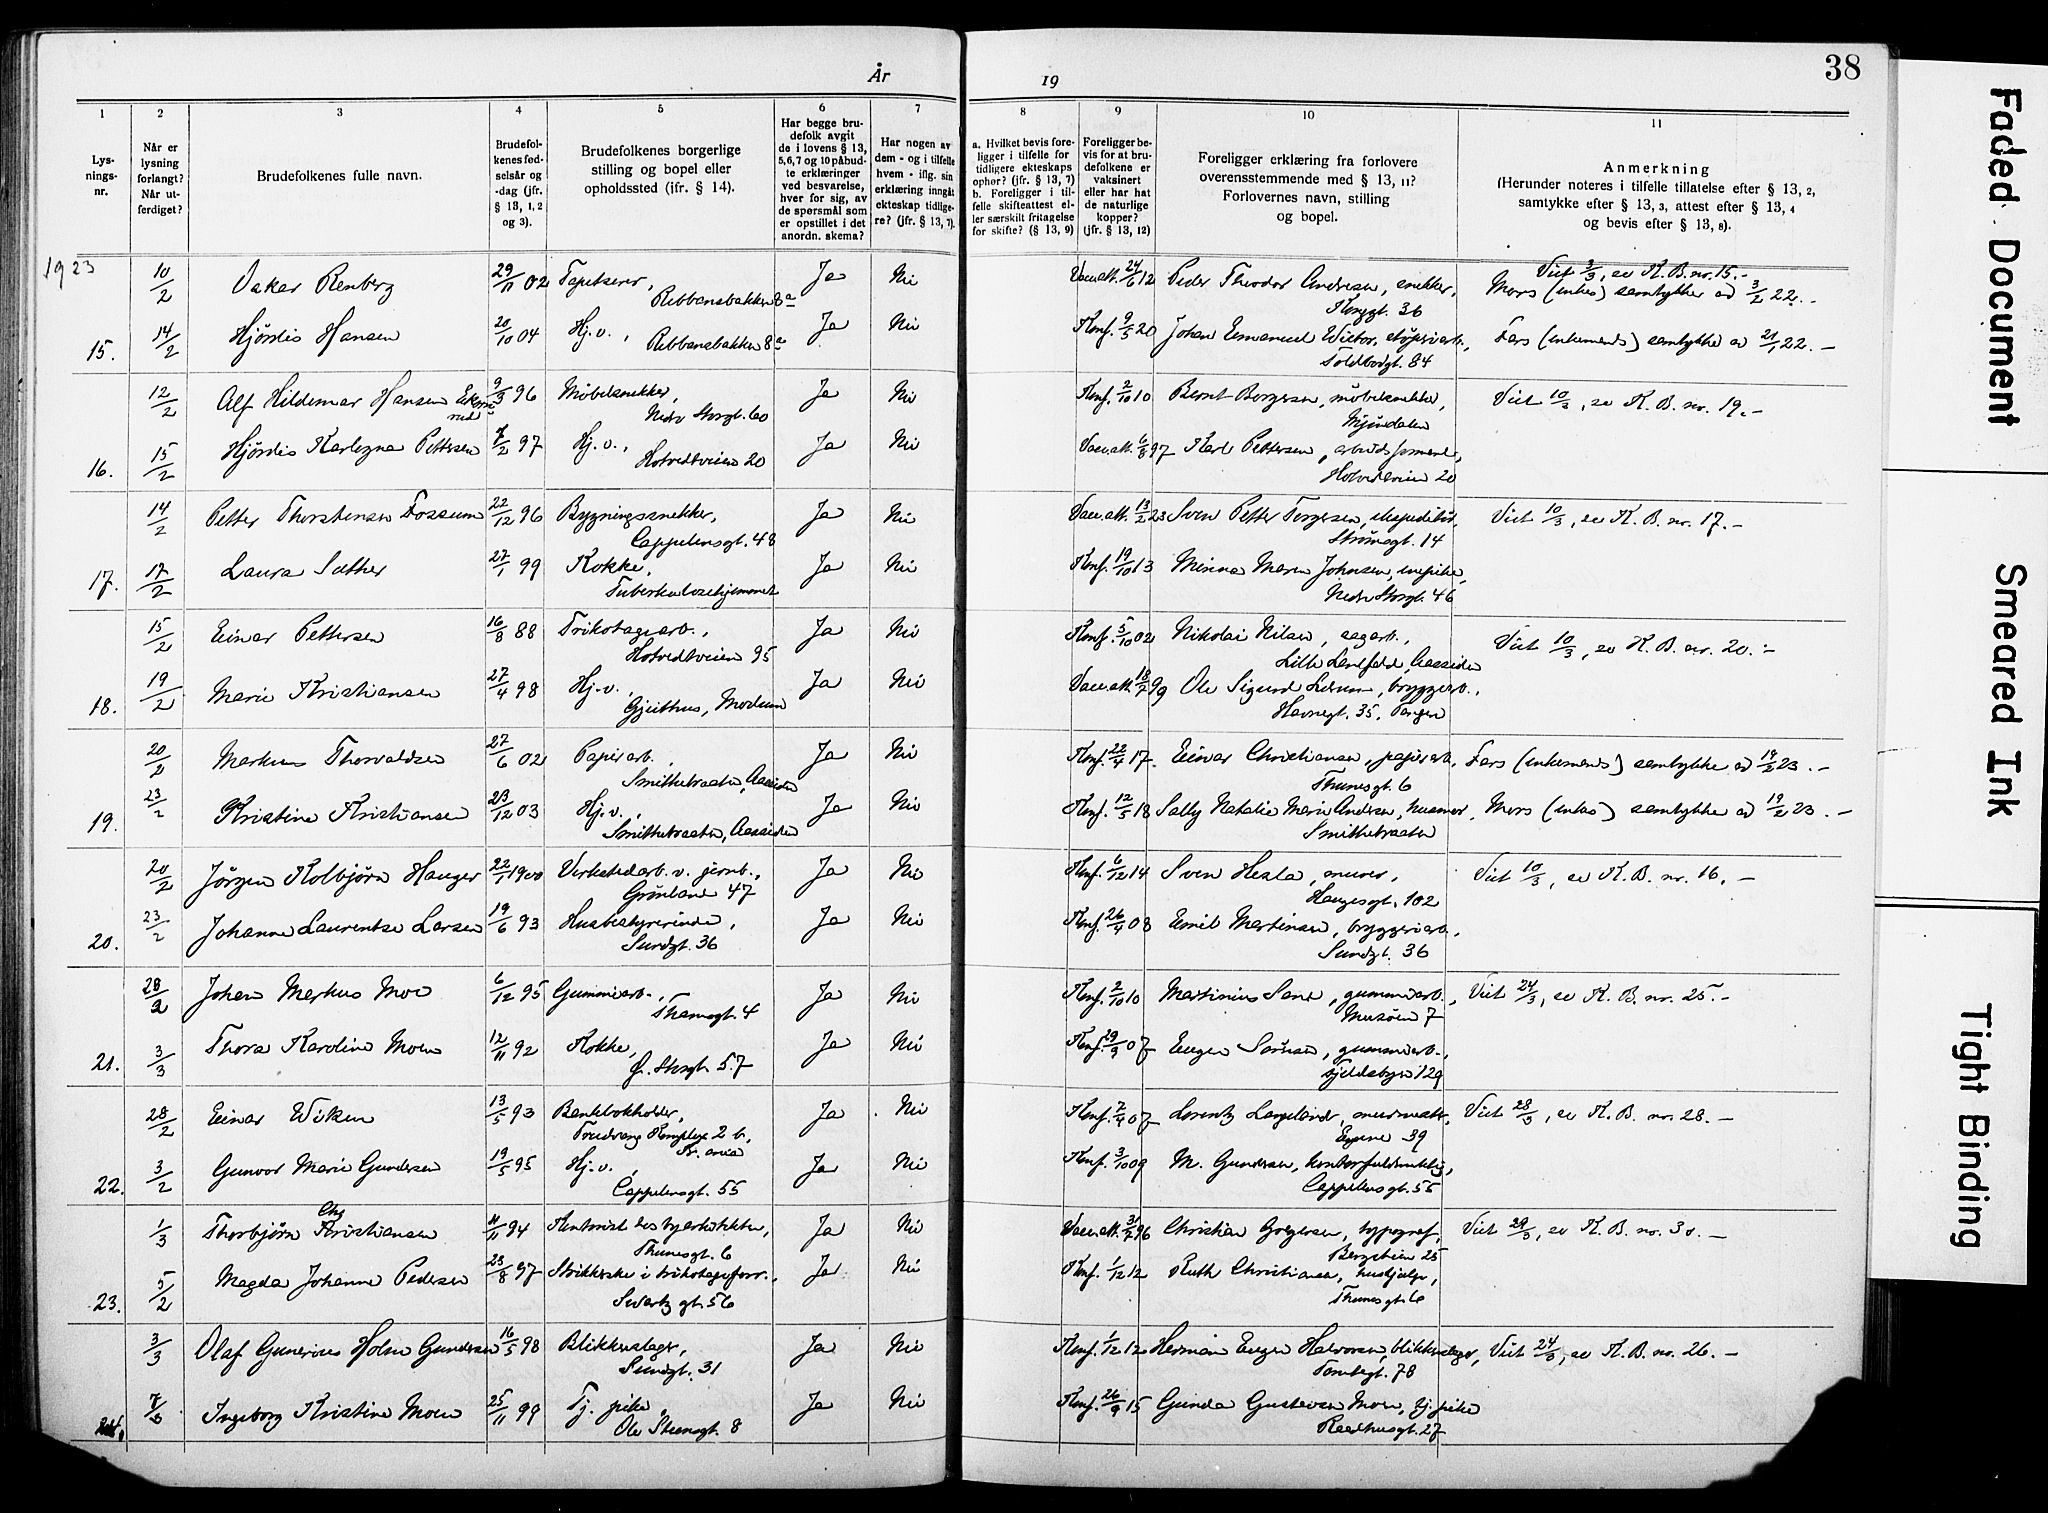 År
19
38
1
2
3
4
5
6
7
8
9
10
11
Lys-
nings-
nr.
Når er
lysning
forlangt?
Når ut-
ferdiget?
Brudefolkenes fulle navn.
Brudefol-
kenes fød-
selsår og
-dag (jfr.
§ 13, 1, 2
og 3).
Brudefolkenes borgerlige
stilling og bopel eller
opholdssted (jfr. § 14).
Har begge bru-
defolk avgit
de i lovens § 13,
5, 6, 7 og 10 påbud-
te erklæringer
ved besvarelse,
hver for sig, av
de spørsmål som
er opstillet i det
anordn. skema?
Har nogen av
dem - og i tilfelle
hvem - iflg. sin
erklæring inngått
ekteskap tidlige-
re? (jfr. § 13, 7).
a. Hvilket bevis fore-
ligger i tilfelle for
tidligere ekteskaps
ophør? (jfr. § 13, 7)
b. Foreligger i til-
felle skifteattest el-
ler særskilt fritagelse
for skifte? (§ 13, 9)
Foreligger be-
vis for at bru-
defolkene er
vaksinert
eller har hat
de naturlige
kopper?
(jfr. § 13, 12)
Foreligger erklæring fra forlovere
overensstemmende med § 13, 11?
Forlovernes navn, stilling
og bopel.
Anmerkning
(Herunder noteres i tilfelle tillatelse efter § 13, 2,
samtykke efter § 13, 3, attest efter § 13, 4
og bevis efter § 13, 8).
1923
10/2 Oskar Renberg 29/11 02 Tapetserer, Ja Nei Vacc.att. 24/6 12 Peder Theodor Andresen, snekker, Viet 3/3, se K.B. nr. 15. -
Ribbansbakken 8a Konggt. 36 Mors (enkes) samtykke ad 3/2 22. -
15. 14/2 Hjørdis Hansen 20/10 04 Hj.v., Ribbansbakken 8a Ja Nei Konf. 9/5 20 Johan Emanuel Wictor, støperiarb., Fars (enkemands) samtykke ad 21/1 22. -
Toldbodgt. 84
12/2 Alf Hildemar Hansen 9/3 96 Møbelsnekker, Ja Nei Konf. 2/10 10 Bernt Borgersen, møbelsnekker, Viet 10/3, se K.B. nr. 19. -
Nedr Storgt. 60 Mjøndalen
16. 15/2 Hjørdis Karlegna Pettersen 7/2 97 Hj.v., Ja Nei Vacc.att. 6/8 97 Karl Pettersen, arbeidsformand,
Hotvedtveien 20 Hotvedtveien 20
14/2 Petter Thorstensen Fossum 22/12 96 Bygningssnekker, Ja Nei Vacc.att. 13/2 23 Sven Petter Torgersen, ekspeditør, Viet 10/3, se K.B. nr. 17. -
Cappelensgt. 48 Strømsgt. 14
17. 17/2 Laura Sæther 27/1 99 Kokke, Ja Nei Konf. 19/10 13 Minna Marie Johnsen, enepike,
Tuberkulosehjemmet Nedr Storgt. 46
15/2 Einar Pettersen 16/8 88 Trikotagearb., Ja Nei Konf. 5/10 02 Nikolai Nilsen, sagarb., Viet 10/3, se K.B. nr. 20. -
Hotvedtveien 95 Lille Landfald, Aassiden
18. 19/2 Marie Kristiansen 27/4 98 Hj.v., Ja Nei Vacc.att. 18/2 99 Ole Sigurd Lierum, bryggerarb.,
Gjeithus, Modum Havnegt. 35, Tangen
20/2 Markus Thorvaldsen 27/6 02 Papirarb., Ja Nei Konf. 22/4 17. Einar Christiansen, papirarb, Fars (enkemands) samtykke ad 19/2 23. -
Smithetraaten, Aassiden Thunesgt. 6
19. 23/2 Kristine Kristiansen 23/12 03 Hj.v., Ja Nei Konf. 12/5 18 Sally Natalie Marie Andersen, husmor, Mors (enkes) samtykke ad 19/2 23. -
Smithetraaten, Aassiden Smithetraaten
20/2 Jørgen Kolbjørn Hauger 22/1 1900 Verkstedarb. v. jernb., Ja Nei Konf. 6/12 14 Sven Hesla, murer, Viet 10/3, se K.B. nr. 16. -
Grønland 47 Haugesgt. 102
20. 23/2 Johanne Laurentse Larsen 19/6 93 Husbestyrerinde, Ja Nei Konf. 26/4 08 Emil Martinsen, bryggeriarb.,
Sundgt. 36 Sundgt. 36
28/2 Johan Markus Moe 6/12 95 Gummiarb., Ja Nei Konf. 2/10 10 Martinius Sand, gummiarb., Viet 24/3, se K.B. nr. 25. -
Thamsgt. 4 Musøen 7
21. 3/3 Thora Karoline Moen 12/11 92 Kokke, Ja Nei Konf. 29/9 07 Eugen Sørnsen, gummiarb.,
Ø. Storgt. 57 Fjeldsbyen 129
28/2 Einar Wiken 13/5 93 Bankbokholder, Ja Nei Konf. 7/4 07 Lorentz Langeland, murmester, Viet 28/3, se K.B. nr. 28. -
Trudvang Kompleks 2 b, Kr.ania 39
22. 3/2 Gunvor Marie Gundersen 19/5 95 Hj.v., Ja Nei Konf. 3/10 09 M. Gundersen, kontorfuldmektig,
Cappelensgt. 55 Cappelensgt. 55
1/3 Thorbjørn Chr Kristiansen 11/11 94 Kontorist hos byarkitekten, Ja Nei Vacc.att. 31/7 96 Christian Gregersen, typograf, Viet 29/3, se K.B. nr. 30. -
Thunesgt. 6 Bergstien 25
23. 5/2 Magda Johanne Pedersen 23/8 97 Strikkerske i trikotageforr., Ja Nei Konf. 1/12 12 Ruth Christiansen, hushjelp,
Swartz gt. 56 Thunesgt. 6
3/3 Olaf Gunerius Holm Gundersen 16/5 98 Blikkenslager, Ja Nei Konf. 1/12 12 Herman Eugen Halvorsen, blikkenslager, Viet 24/3, se K.B. nr. 26. -
Sundgt. 31 Tomtegt. 78
24. 7/3 Ingeborg Kristine Moen 25/11 99 Tj. pike, Ja Nei Konf. 26/9 15 Gunda Gustava Moen, tj. pike
Ole Steensgt. 8 Raadhusgt. 27
Faded Document
Smeared Ink
Tight Binding